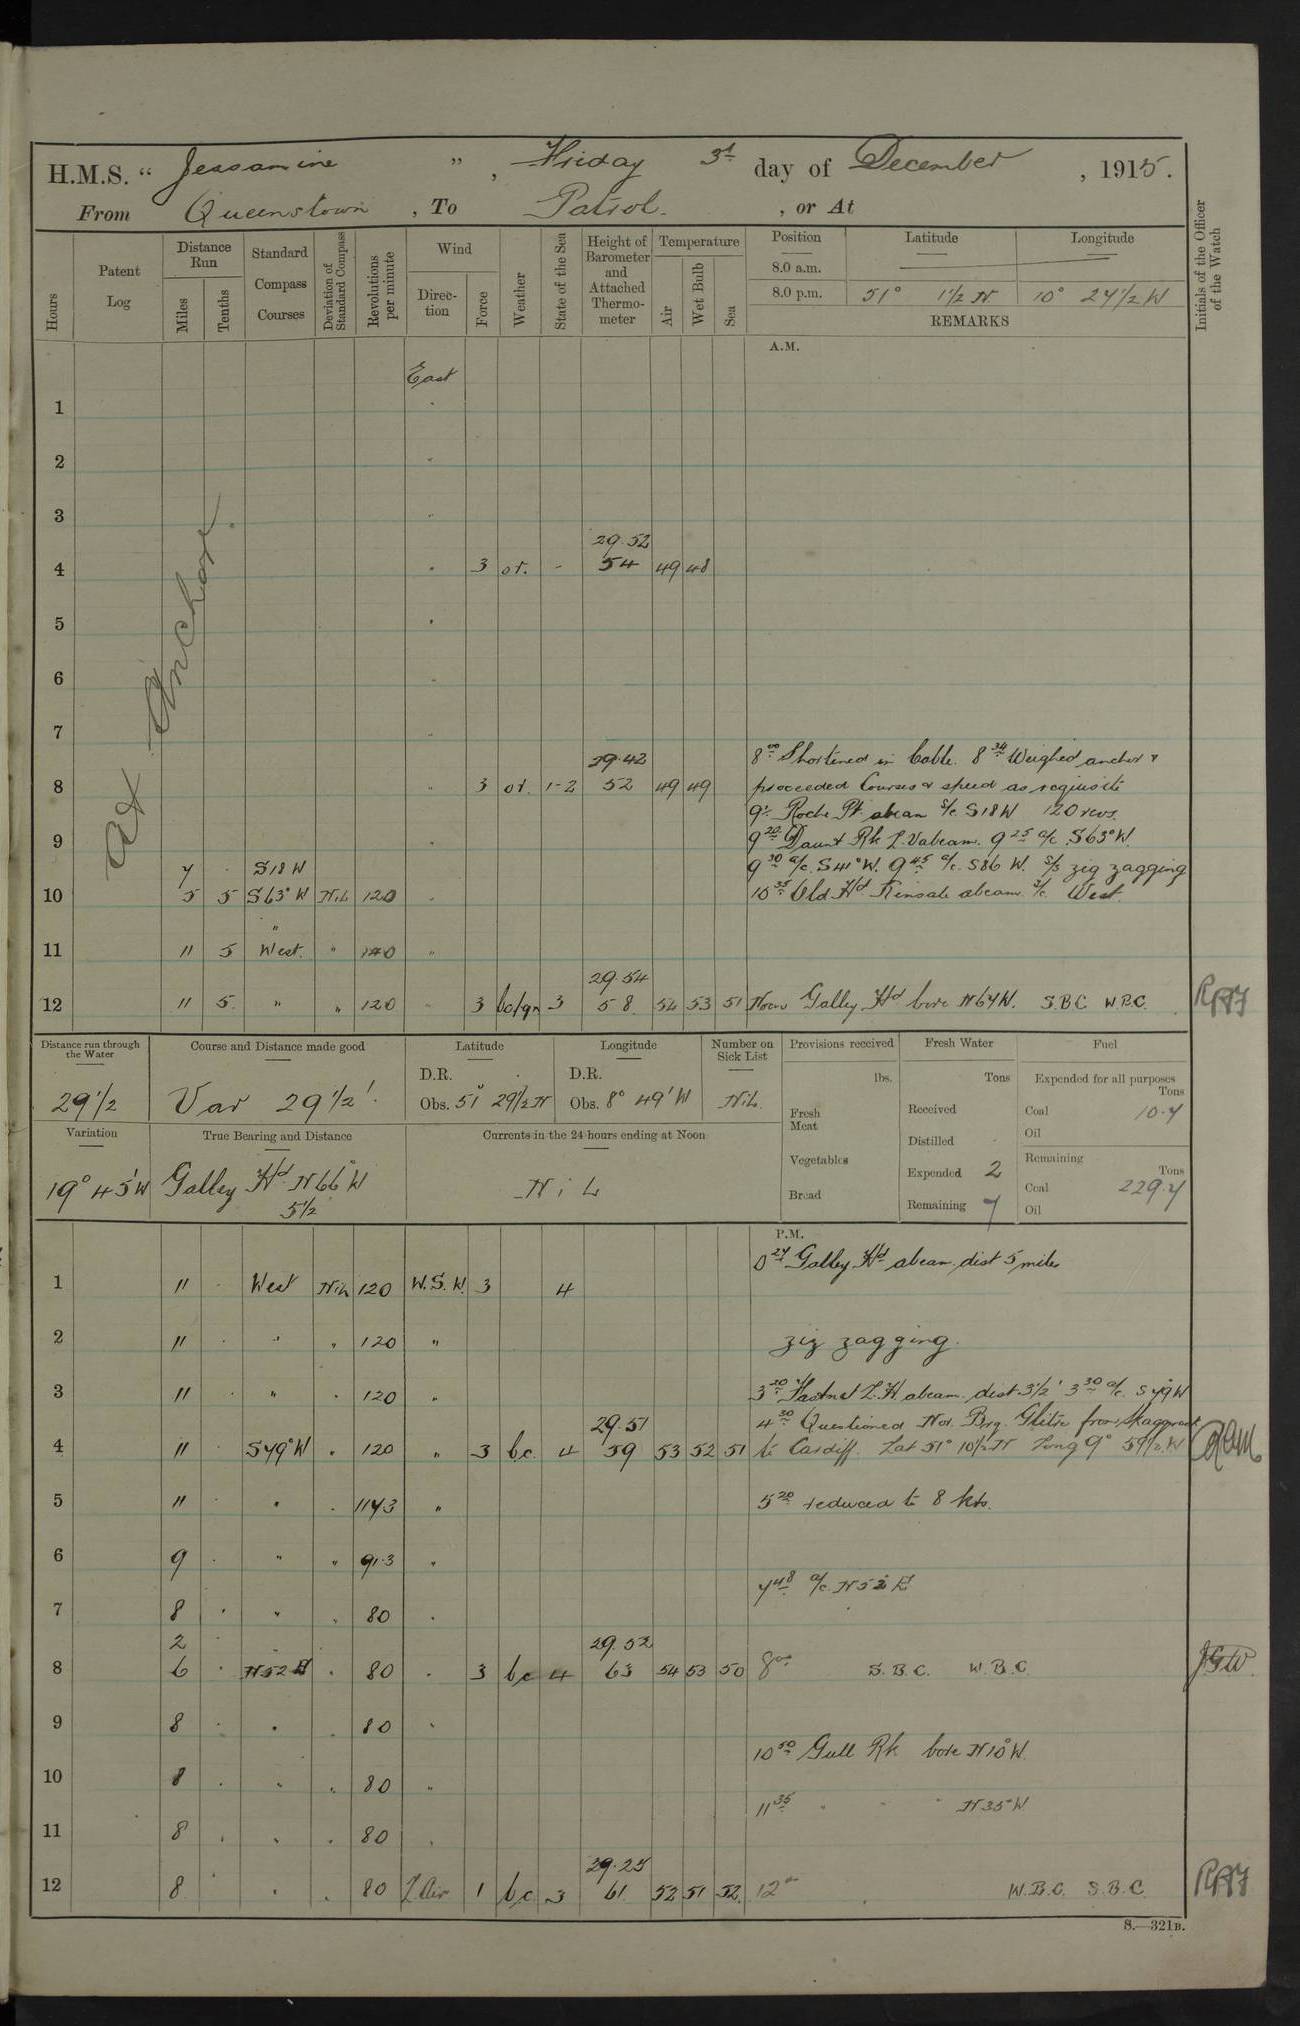 H.M.S. “ Jessamine ” , Friday 3rd day of December , 1915.
From Queenstown , To Patrol. , or At
Hours
Patent Log
Distance Run
Miles
Tenths
Standard Compass Courses
Deviation of Standard Compass
Revolutions per minute
Wind
Direction
Force
Weather
State of the Sea
Height of Barometer and Attached Thermometer
Temperature
Air
Wet Bulb
Sea
Position Latitude Longitude
8.0 a.m.
8.0 p.m. 51° 1 1/2 N 10° 27 1/2 W
REMARKS
Initials of the Officer of the Watch
A.M.
East
1
2
3
At Anchor.
29.52
4 " 3 or. - 54 49 48
5 "
6 "
7 "
8 00 Shortened in Cable. 8 34 Weighed anchor &
29.42
8 " 3 or. 1-2 52 49 49 proceeded Courses & speed as requisite
9. Roche Pt. abeam S/c S18W 120 revs.
9 " 9 20 Daunt Rk L.V abeam. 9 25 a/c. S63°W.
7 . S18W 9 30 a/c. S41°W. 9 45 a/c. S86 W. S/s zig zagging
10 5 5 S63°W Nil 120 " 10 35 Old Hd. Kinsale abeam. S/c. West.
"
11 11 5 West. " 120 "
29.54
12 11 5. " " 120 " 3 bc/gn 3 58 54 53 51 Noon Galley Hd bore N64W. S.B.C. W.B.C.
Distance run through the Water
29 1/2
Course and Distance made good
Var 29 1/2'.
Latitude
D.R.
Obs. 51° 29 1/2 N
Longitude
D.R.
Obs. 8° 49' W
Number on Sick List
Nil.
Provisions received
lbs.
Fresh Meat
Vegetables
Bread
Fresh Water
Tons
Received
Distilled
Expended 2
Remaining 7
Fuel
Expended for all purposes
Tons
Coal 10.7
Oil
Remaining
Tons
Coal 229.7
Oil
Variation
19° 45' W
True Bearing and Distance
Galley Hd N66°W
5 1/2
Currents in the 24 hours ending at Noon
Nil
P.M.
0 27 Galley Hd abeam dist 5 miles
1 11 . West Nil 120 W.S.W. 3 4
2 11 . " " 120 " zig zagging.
3 11 . " " 120 " 3 20 Fastnet L.H. abeam. dist 3 1/2' 3 30 a/c. S79W
29.51 4 30 Questioned Nor. Brq. Glitre from Skaggerack
4 11 S79°W " 120 " 3 bc. 4 59 53 52 51 to Cardiff. Lat 51° 10 1/2 N Long 9° 59 1/2 W
5 11 . " " 117.3 " 5 20 reduced to 8 kts.
6 9 . " " 91.3 "
7 48 a/c. N52°E
7 8 . " " 80 "
2 29.52
8 6 . N52E " 80 " 3 bc 4 63 54 53 50 8 00 S.B.C. W.B.C. JGW.
9 8 . " " 80 "
10 50 Gull Rk bore N10°W.
10 8 . " " 80 "
11 35 " " " N35°W
11 8 . " " 80 "
29.25
12 8 " " 80 L Air 1 bc 3 61 52 51 52. 12 W.B.C. S.B.C.
S.—321B.